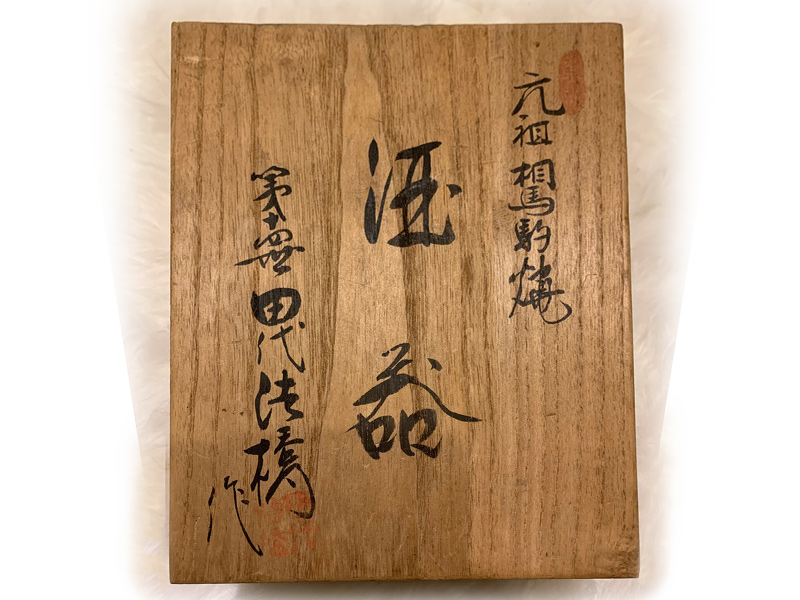 元祖相馬駒焼
酒器
第十四世田代法橋作